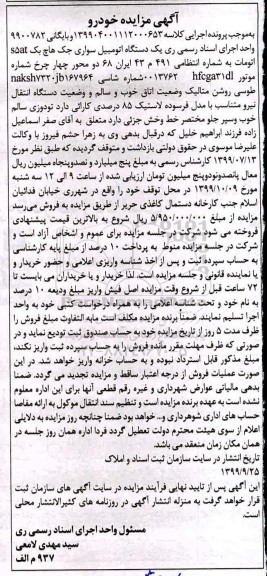 آگهی مزایده خودرو
بموجب پرونده اجرایی کلاسه ۱۳۹۹۰۴۰۰۱۱۱۲۰۰۰۶۵۳ و بایگانی ۹۹۰۰۷۸۲
واحد اجرای اسناد رسمی ری یک دستگاه اتومبیل سواری جک هاچ بک s5at
اتومات به شماره انتظامی ۴۹۱ م ۴۳ ایران ۶۸ دو محور چهار چرخ شماره
موتور hfcga۳۱dl ۰۰۱۳۷۶۲ شماره شاسی nakshv۷۳۲۰jb۱۶۷۹۶۴
طوسی روشن متالیک وضعیت اتاق خوب و سالم و وضعیت دستگاه انتقال
نیرو متناسب با مدل فرسوده لاستیک ۸۵ درصدی کارائی دارد تودوزی سالم
خوب وسپر جلو مختصر خط وخش جزئی دارد متعلق به آقای صفر اسماعیل
زاده فرزند ابراهیم خلیل که درقبال بدهی وی به زهرا حشم فیروز با وکالت
علیرضا موسوی در حقوق دولتی بازداشت و متوقف گردیده که طبق نظر مورخ
۱۳۹۹/۰۷/۱۳ کارشناس رسمی به مبلغ پنج میلیارد و نهصدوپنجاه میلیون ریال
معال پانصدونودوپنج میلیون تومان ارزیابی شده از ساعت ۹ الی ۱۲ سه شنبه
مورخ ۱۳۹۹/۱۰/۰۹ در محل توقف خود را واقع در شهرری خیابان فدائیان
اسلام جنب کارخانه دستمال کاغذی حریر از طریق مزایده به فروش می‌رسد
مزایده از مبلغ ۵/۹۵۰/۰۰۰/۰۰۰ ریال شروع به بالاترین قیمت پیشنهادی
فروخته می شود شرکت در جلسه مزایده برای عموم و اشخاص آزاد است و
شرکت در جلسه مزایده منوط به پرداخت ۱۰ درصد از مبلغ پایه کارشناسی
به حساب سپرده ثبت و پس از اخذ شناسه واریزی اعلامی و حضور خریدار و
یا نماینده قانونی و جلسه مزایده است. لذا خریدار و یا خریداران می بایست تا
۷۲ ساعت قبل از شروع وقت مزایده اصل فیش واریز مبلغ ودیعه ۱۰ درصد
به نام خود و تحت شناسه اعلامی را به همراه درخواست کتبی خود به واحد
اجرا تسلیم نمایند. ضمناً برنده مزایده مکلف است مابه التفاوت مبلغ فروش را
ظرف مدت ۵ روز از تاریخ مزایده خود به حساب صندوق ثبت تودیع نماید و در
صورتی که ظرف مهلت مقرر مانده فروش را به حساب سپرده ثبت واریز نکند،
مبلغ مذکور قابل استرداد نبوده و به حساب خزانه واریز خواهد شد. در این
صورت عملیات فروش از درجه اعتبار ساقط و مزایده تجدید می گردد. ضمنا
بدهی مالیاتی عوارض شهرداری و غیره رقم قطعی آنها برای این اداره معلوم
نشده است به عهده برنده مزایده است و تنظیم سند انتقال موکول به ارائه مفاصا
حساب های اداری شوهرداری و.. خواهد بود ضمنا چنانچه روز مزایده به دلایلی
اعلام از سوی هیئت محترم دولت تعطیل گردد فردا اداره همان روز جلسه در
همان مکان زمان منعقد می باشد.
تاریخ انتشار در سایت سازمان ثبت اسناد و املاک
۱۳۹۹/۹/۲۵
این آگهی پس از تایید نهایی فرآیند مزایده در سایت آگهی های سازمان ثبت
قرار خواهد گرفت به منزله انتشار آگهی در روزنامه های کثیرالانتشار محلی
است.
مسئول واحد اجرای اسناد رسمی ری
سید مهدی لامعی
۹۳۷ م الف